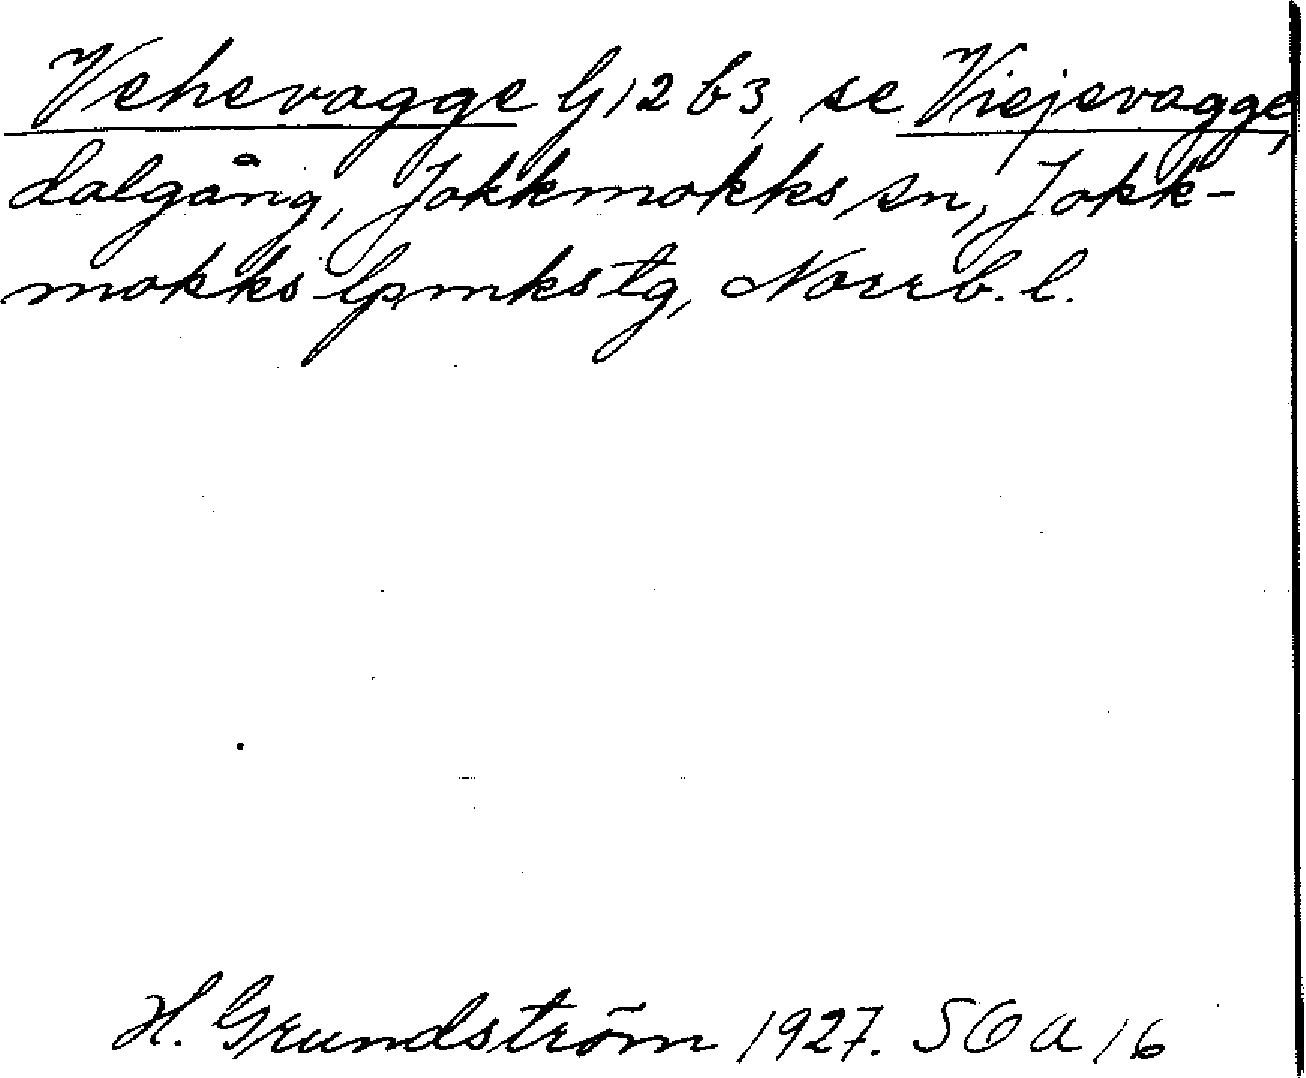 Vehevagge G12 b3, se Viejevagge,
dalgång, Jokkmokks sn, Jokk-
mokks lpmks tg, Norrb. l.
H. Grundström 1927. 56 a 16